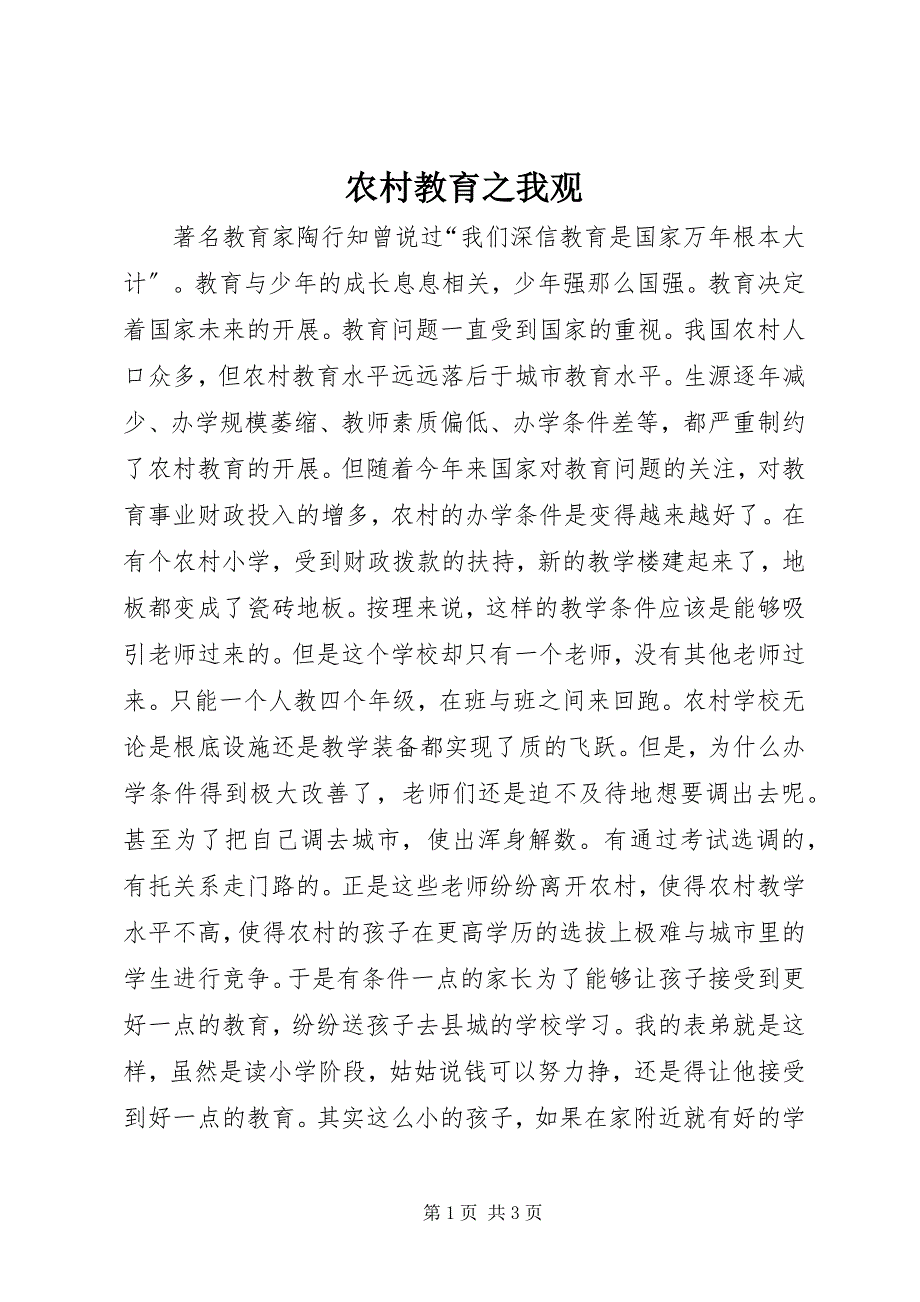 农村教育之我观
著名教育家陶行知曾说过“我们深信教育是国家万年根本大
计〞。教育与少年的成长息息相关，少年强那么国强。教育决定
着国家未来的开展。教育问题一直受到国家的重视。我国农村人
口众多，但农村教育水平远远落后于城市教育水平。生源逐年减
少、办学规模萎缩、教师素质偏低、办学条件差等，都严重制约
了农村教育的开展。但随着今年来国家对教育问题的关注，对教
育事业财政投入的增多，农村的办学条件是变得越来越好了。在
有个农村小学，受到财政拨款的扶持，新的教学楼建起来了，地
板都变成了瓷砖地板。按理来说，这样的教学条件应该是能够吸
引老师过来的。但是这个学校却只有一个老师，没有其他老师过
来。只能一个人教四个年级，在班与班之间来回跑。农村学校无
论是根底设施还是教学装备都实现了质的飞跃。但是，为什么办
学条件得到极大改善了，老师们还是迫不及待地想要调出去呢。
甚至为了把自己调去城市，使出浑身解数。有通过考试选调的，
有托关系走门路的。正是这些老师纷纷离开农村，使得农村教学
水平不高，使得农村的孩子在更高学历的选拔上极难与城市里的
学生进行竞争。于是有条件一点的家长为了能够让孩子接受到更
好一点的教育，纷纷送孩子去县城的学校学习。我的表弟就是这
样，虽然是读小学阶段，姑姑说钱可以努力挣，还是得让他接受
到好一点的教育。其实这么小的孩子，如果在家附近就有好的学
第 1 页 共 3 页